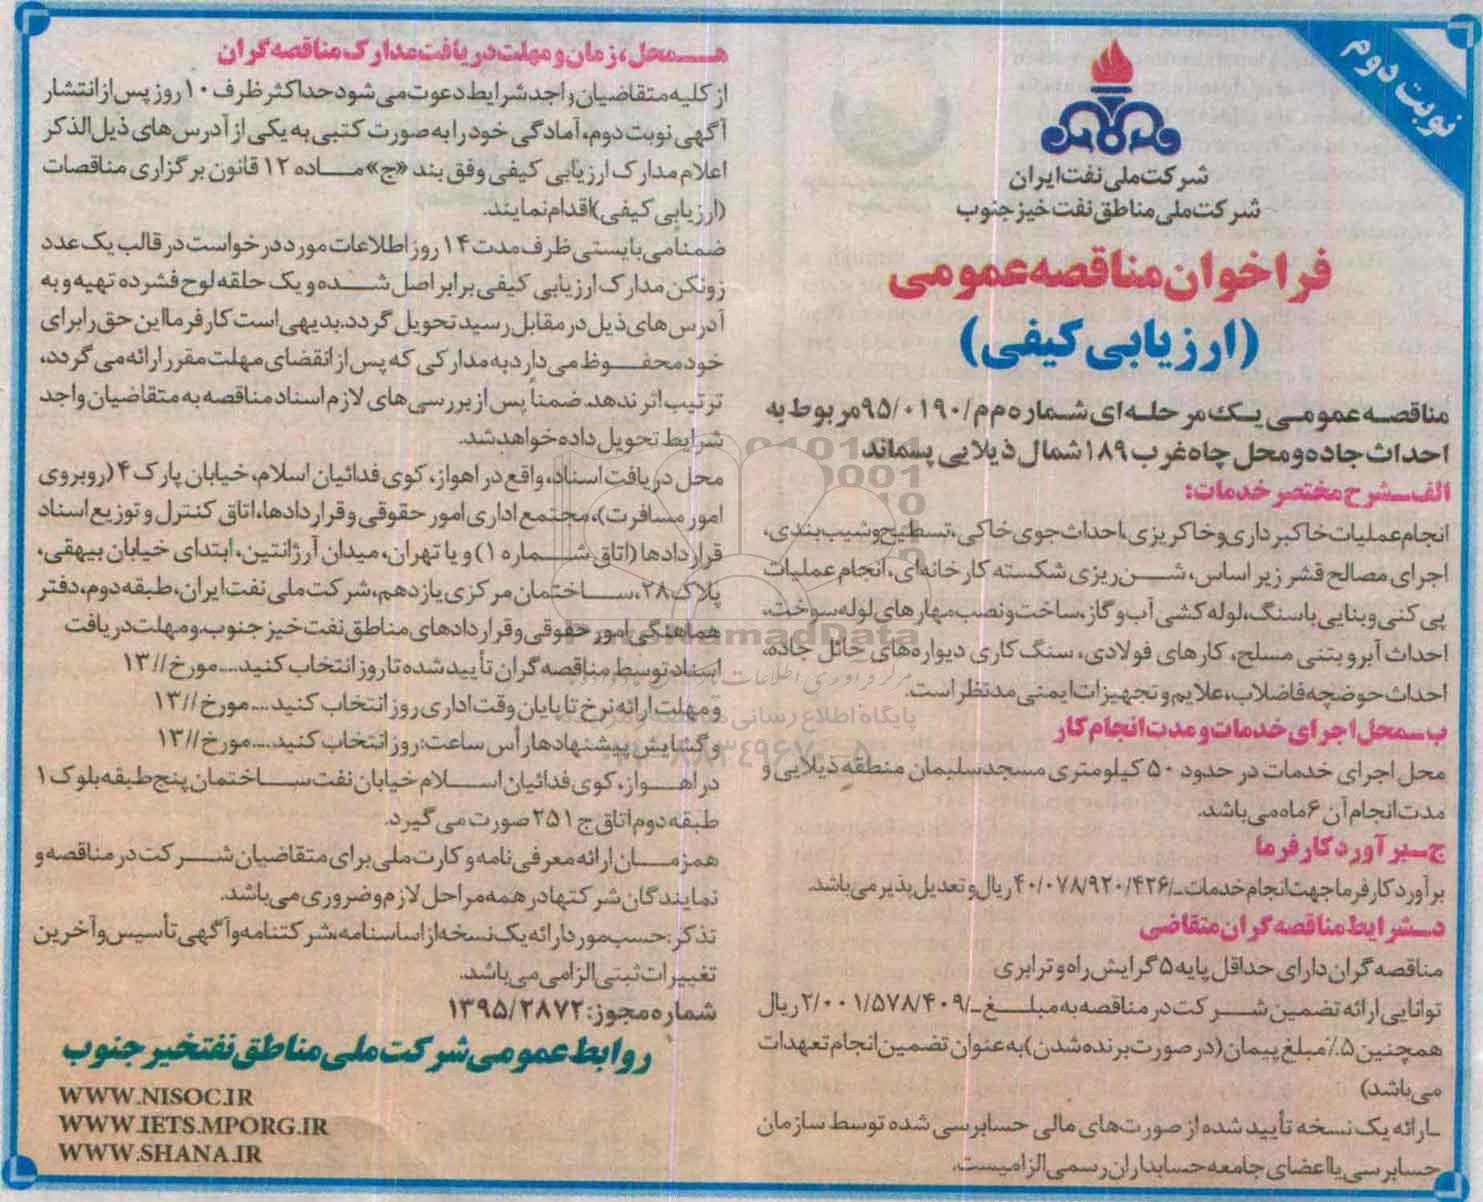 نوبت دوم
شرکت ملی نفت ایران
شرکت ملی مناطق نفت خیز جنوب
فراخوان مناقصه عمومی
(ارزیابی کیفی)
مناقصه عمومی یک مرحله ای شماره م م/۹۵/۰۱۹۰ مربوط به
احداث جاده و محل چاه غرب ۱۸۹ شمال ذیلایی پسماند
الف ـ شرح مختصر خدمات:
انجام عملیات خاکبرداری و خاکریزی، احداث جوی خاکی، تسطیح و شیب بندی،
اجرای مصالح قشر زیر اساس، شن ریزی شکسته کارخانه ای، انجام عملیات
پی کنی و بنایی با سنگ، لوله کشی آب و گاز، ساخت و نصب مهارهای لوله سوخت،
احداث آبرو بتنی مسلح، کارهای فولادی، سنگ کاری دیواره های حائل جاده،
احداث حوضچه فاضلاب، علایم و تجهیزات ایمنی مدنظر است.
ب ـ محل اجرای خدمات و مدت انجام کار
محل اجرای خدمات در حدود ۵۰ کیلومتری مسجدسلیمان منطقه ذیلایی و
مدت انجام آن ۶ ماه می باشد.
ج ـ برآورد کارفرما
برآورد کارفرما جهت انجام خدمات ـ/۴۰/۰۷۸/۹۲۰/۴۲۶ ریال و تعدیل پذیر می باشد.
د ـ شرایط مناقصه گران متقاضی
مناقصه گران دارای حداقل پایه ۵ گرایش راه و ترابری
توانایی ارائه تضمین شرکت در مناقصه به مبلغ ـ/۲/۰۰۱/۵۷۸/۴۰۹ ریال
همچنین ۵٪ مبلغ پیمان (در صورت برنده شدن) به عنوان تضمین انجام تعهدات
می باشد)
ـ ارائه یک نسخه تأیید شده از صورت های مالی حسابرسی شده توسط سازمان
حسابرسی یا اعضای جامعه حسابداران رسمی الزامیست.
هـ ـ محل، زمان و مهلت دریافت مدارک مناقصه گران
از کلیه متقاضیان واجد شرایط دعوت می شود حداکثر ظرف ۱۰ روز پس از انتشار
آگهی نوبت دوم، آمادگی خود را به صورت کتبی به یکی از آدرس های ذیل الذکر
اعلام مدارک ارزیابی کیفی وفق بند «ج» ماده ۱۲ قانون برگزاری مناقصات
(ارزیابی کیفی) اقدام نمایند.
ضمناً می بایستی ظرف مدت ۱۴ روز اطلاعات مورد درخواست در قالب یک عدد
زونکن مدارک ارزیابی کیفی برابر اصل شده و یک حلقه لوح فشرده تهیه و به
آدرس های ذیل در مقابل رسید تحویل گردد. بدیهی است کارفرما این حق را برای
خود محفوظ می دارد به مدارکی که پس از انقضای مهلت مقرر ارائه می گردد،
ترتیب اثر ندهد. ضمناً پس از بررسی های لازم اسناد مناقصه به متقاضیان واجد
شرایط تحویل داده خواهد شد.
محل دریافت اسناد، واقع در اهواز، کوی فدائیان اسلام، خیابان پارک ۴ (روبروی
امور مسافرت)، مجتمع اداری امور حقوقی و قراردادها، اتاق کنترل و توزیع اسناد
قراردادها (اتاق شماره ۱) و یا تهران، میدان آرژانتین، ابتدای خیابان بیهقی،
پلاک ۲۸، ساختمان مرکزی یازدهم، شرکت ملی نفت ایران، طبقه دوم، دفتر
هماهنگی امور حقوقی و قراردادهای مناطق نفت خیز جنوب و مهلت دریافت
اسناد توسط مناقصه گران تأیید شده تا روز انتخاب کنید.... مورخ //۱۳
و مهلت ارائه نرخ تا پایان وقت اداری روز انتخاب کنید.... مورخ //۱۳
و گشایش پیشنهادها رأس ساعت: روز انتخاب کنید.... مورخ //۱۳
در اهواز، کوی فدائیان اسلام خیابان نفت ساختمان پنج طبقه بلوک ۱
طبقه دوم اتاق ج ۲۵۱ صورت می گیرد.
همزمان ارائه معرفی نامه و کارت ملی برای متقاضیان شرکت در مناقصه و
نمایندگان شرکتها در همه مراحل لازم و ضروری می باشد.
تذکر: حسب مورد ارائه یک نسخه از اساسنامه، شرکتنامه و آگهی تأسیس و آخرین
تغییرات ثبتی الزامی می باشد.
شماره مجوز: ۱۳۹۵/۲۸۷۲
روابط عمومی شرکت ملی مناطق نفتخیز جنوب
WWW.NISOC.IR
WWW.IETS.MPORG.IR
WWW.SHANA.IR
پایگاه اطلاع رسانی